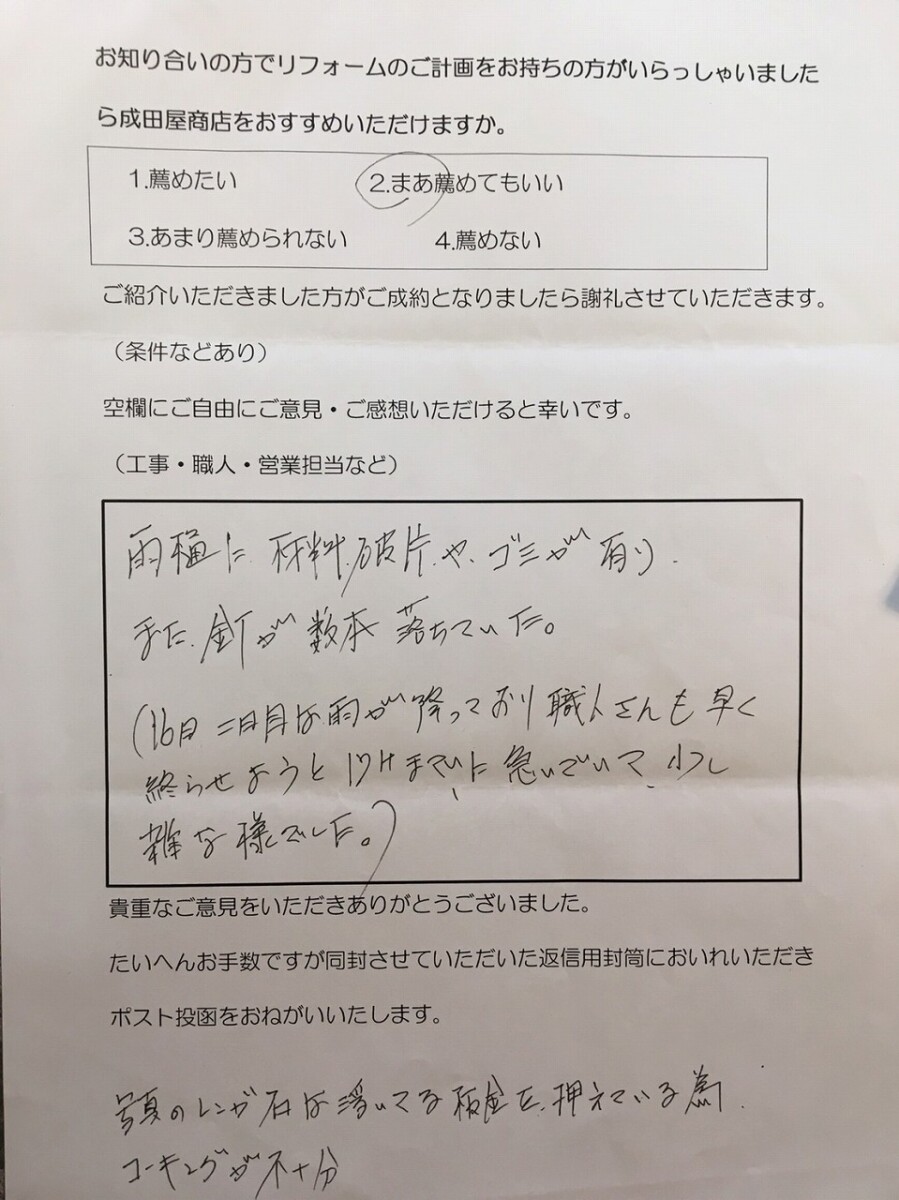 お知り合いの方でリフォームのご計画をお持ちの方がいらっしゃいました
ら成田屋商店をおすすめいただけますか。
1.薦めたい 2.まあ薦めてもいい
3.あまり薦められない 4.薦めない
ご紹介いただきました方がご成約となりましたら謝礼させていただきます。
（条件などあり）
空欄にご自由にご意見・ご感想いただけると幸いです。
（工事・職人・営業担当など）
雨樋に材料破片や、ゴミが有り.
また、釘が数本落ちていた。
(16日二日目は雨が降っており職人さんも早く
終らせようと 急いでいて、少し
雑な様でした。)
貴重なご意見をいただきありがとうございました。
たいへんお手数ですが同封させていただいた返信用封筒においれいただき
ポスト投函をおねがいいたします。
写真のレンガ石は浮いてる板金を、押えている為.
コーキングが不十分